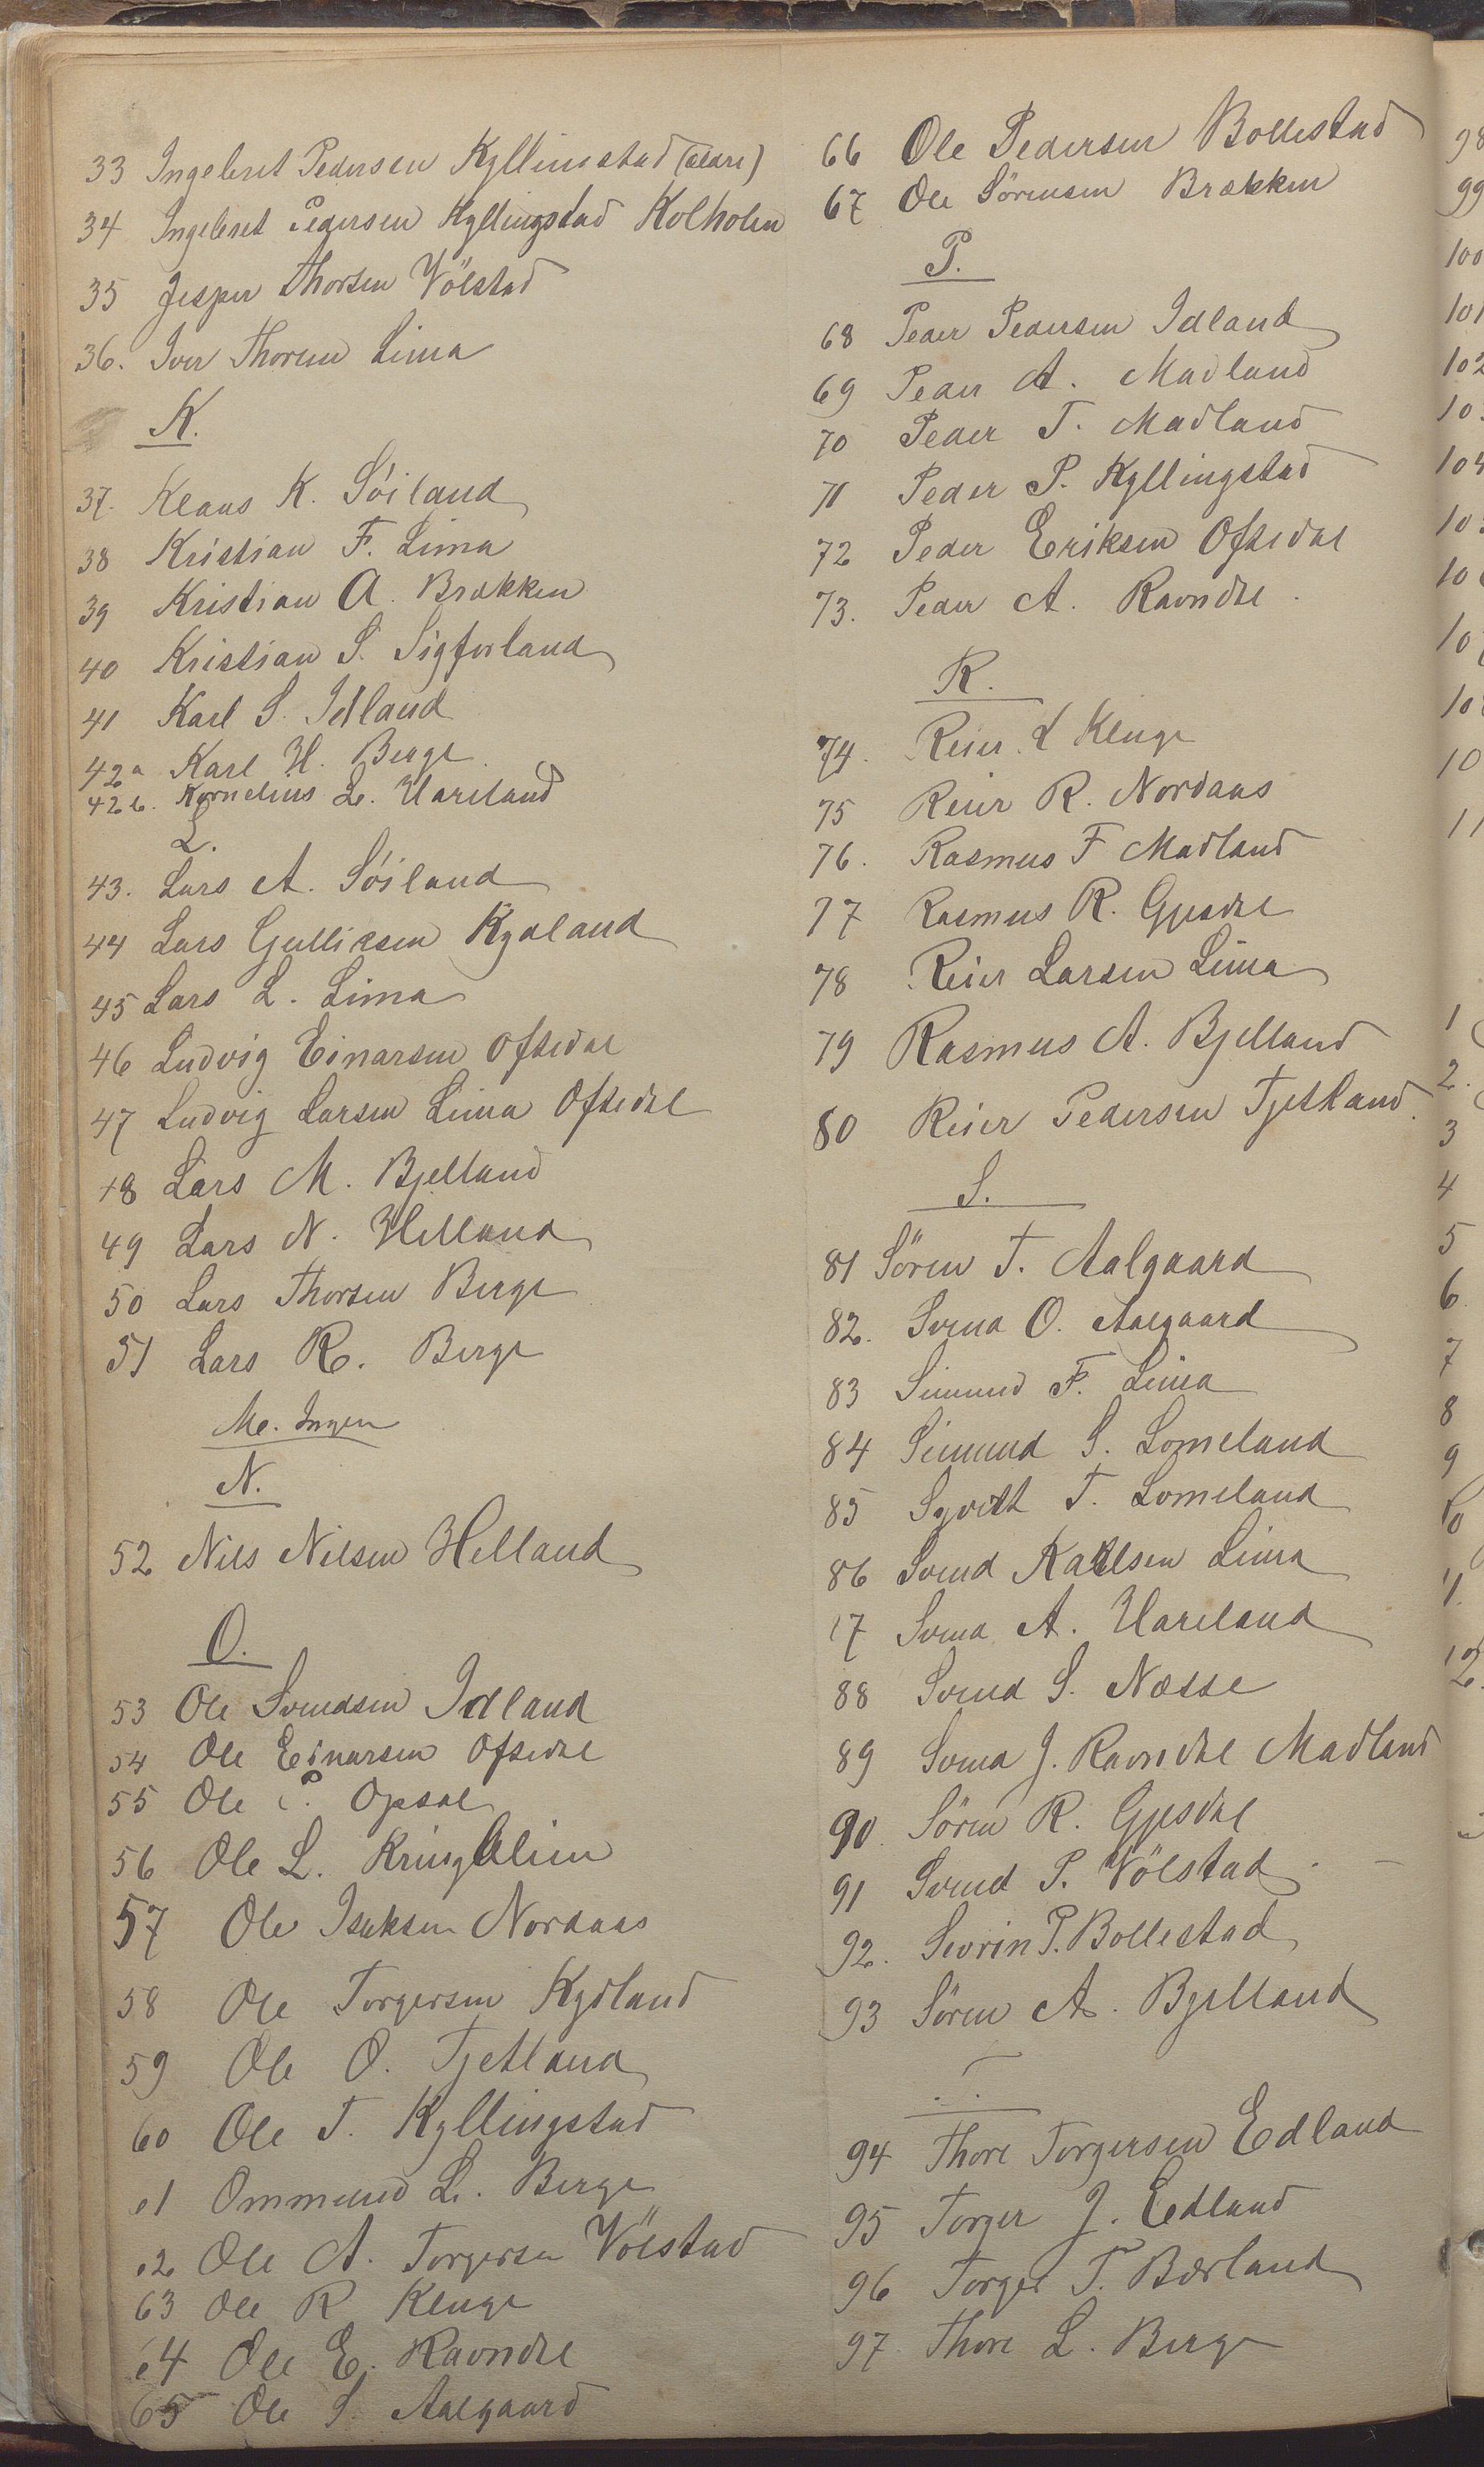 33 Ingebret Pedersen Kyllingstad (ældre)
34 Ingebret Pedersen Kyllingstad Kolholen
35 Jesper Thorsen Völstad
36. Iver Thorsen Lima
K.
37. Klaus K. Söiland
38 Kristian F. Lima
39 Kristian A. Brækken
40 Kristian S. Sigforland
41 Karl S. Idland
42a Karl H. Berge
42b. Kornelius L. Hareland
L.
43. Lars A. Söiland
44 Lars Gulliksen Kydland
45 Lars L. Lima
46 Ludvig Einarsen Oftedal
47 Ludvig Larsen Lima Oftedal
48 Lars M. Bjelland
49 Lars N. Helland
50 Lars Thorsen Berge
51 Lars R. Berge
M. Ingen
N.
52 Nils Nilsen Helland
O.
53 Ole Svendsen Idland
54 Ole Einarsen Oftedal
55 Ole P. Opsal
56 Ole L. Kringlelien
57 Ole Isaksen Nordaas
58 Ole Torgersen Kydland
59 Ole O. Tjetland
60 Ole T. Kyllingstad
61 Ommund L. Berge
62 Ole A. Torgersen Völstad
63 Ole R Kluge
64 Ole E. Ravndal
65 Ole S. Aalgaard
66 Ole Pedersen Bollestad
67 Ole Sörensen Brækken
P.
68 Peder Pedersen Idland
69 Peder A. Madland
70 Peder T. Madland
71 Peder P. Kyllingstad
72 Peder Eriksen Oftedal
73. Peder A. Ravndal.
R.
74. Reier L Kluge
75 Reier R. Nordaas
76. Rasmus F Madland
77 Rasmus R. Gjesdal
78 Reier Larsen Lima
79 Rasmus A. Bjelland
80 Reier Pedersen Tjetland.
S.
81 Sören T. Aalgaard
82. Svend O. Aalgaard
83 Simund F. Lima
84 Simund S. Lomeland
85 Sigvalt T. Lomeland
86 Svend Karlsen Lima
87 Svend A. Hareland
88 Svend S. Næsse
89 Svend J. Ravndal Madland
90. Sören R. Gjesdal
91 Svend P. Völstad
92. Sevrin P. Bollestad
93 Sören A. Bjelland
T.
94 Thore Torgersen Edland
95 Torger J. Edland
96 Torger T. Bærland
97 Thore L. Berge